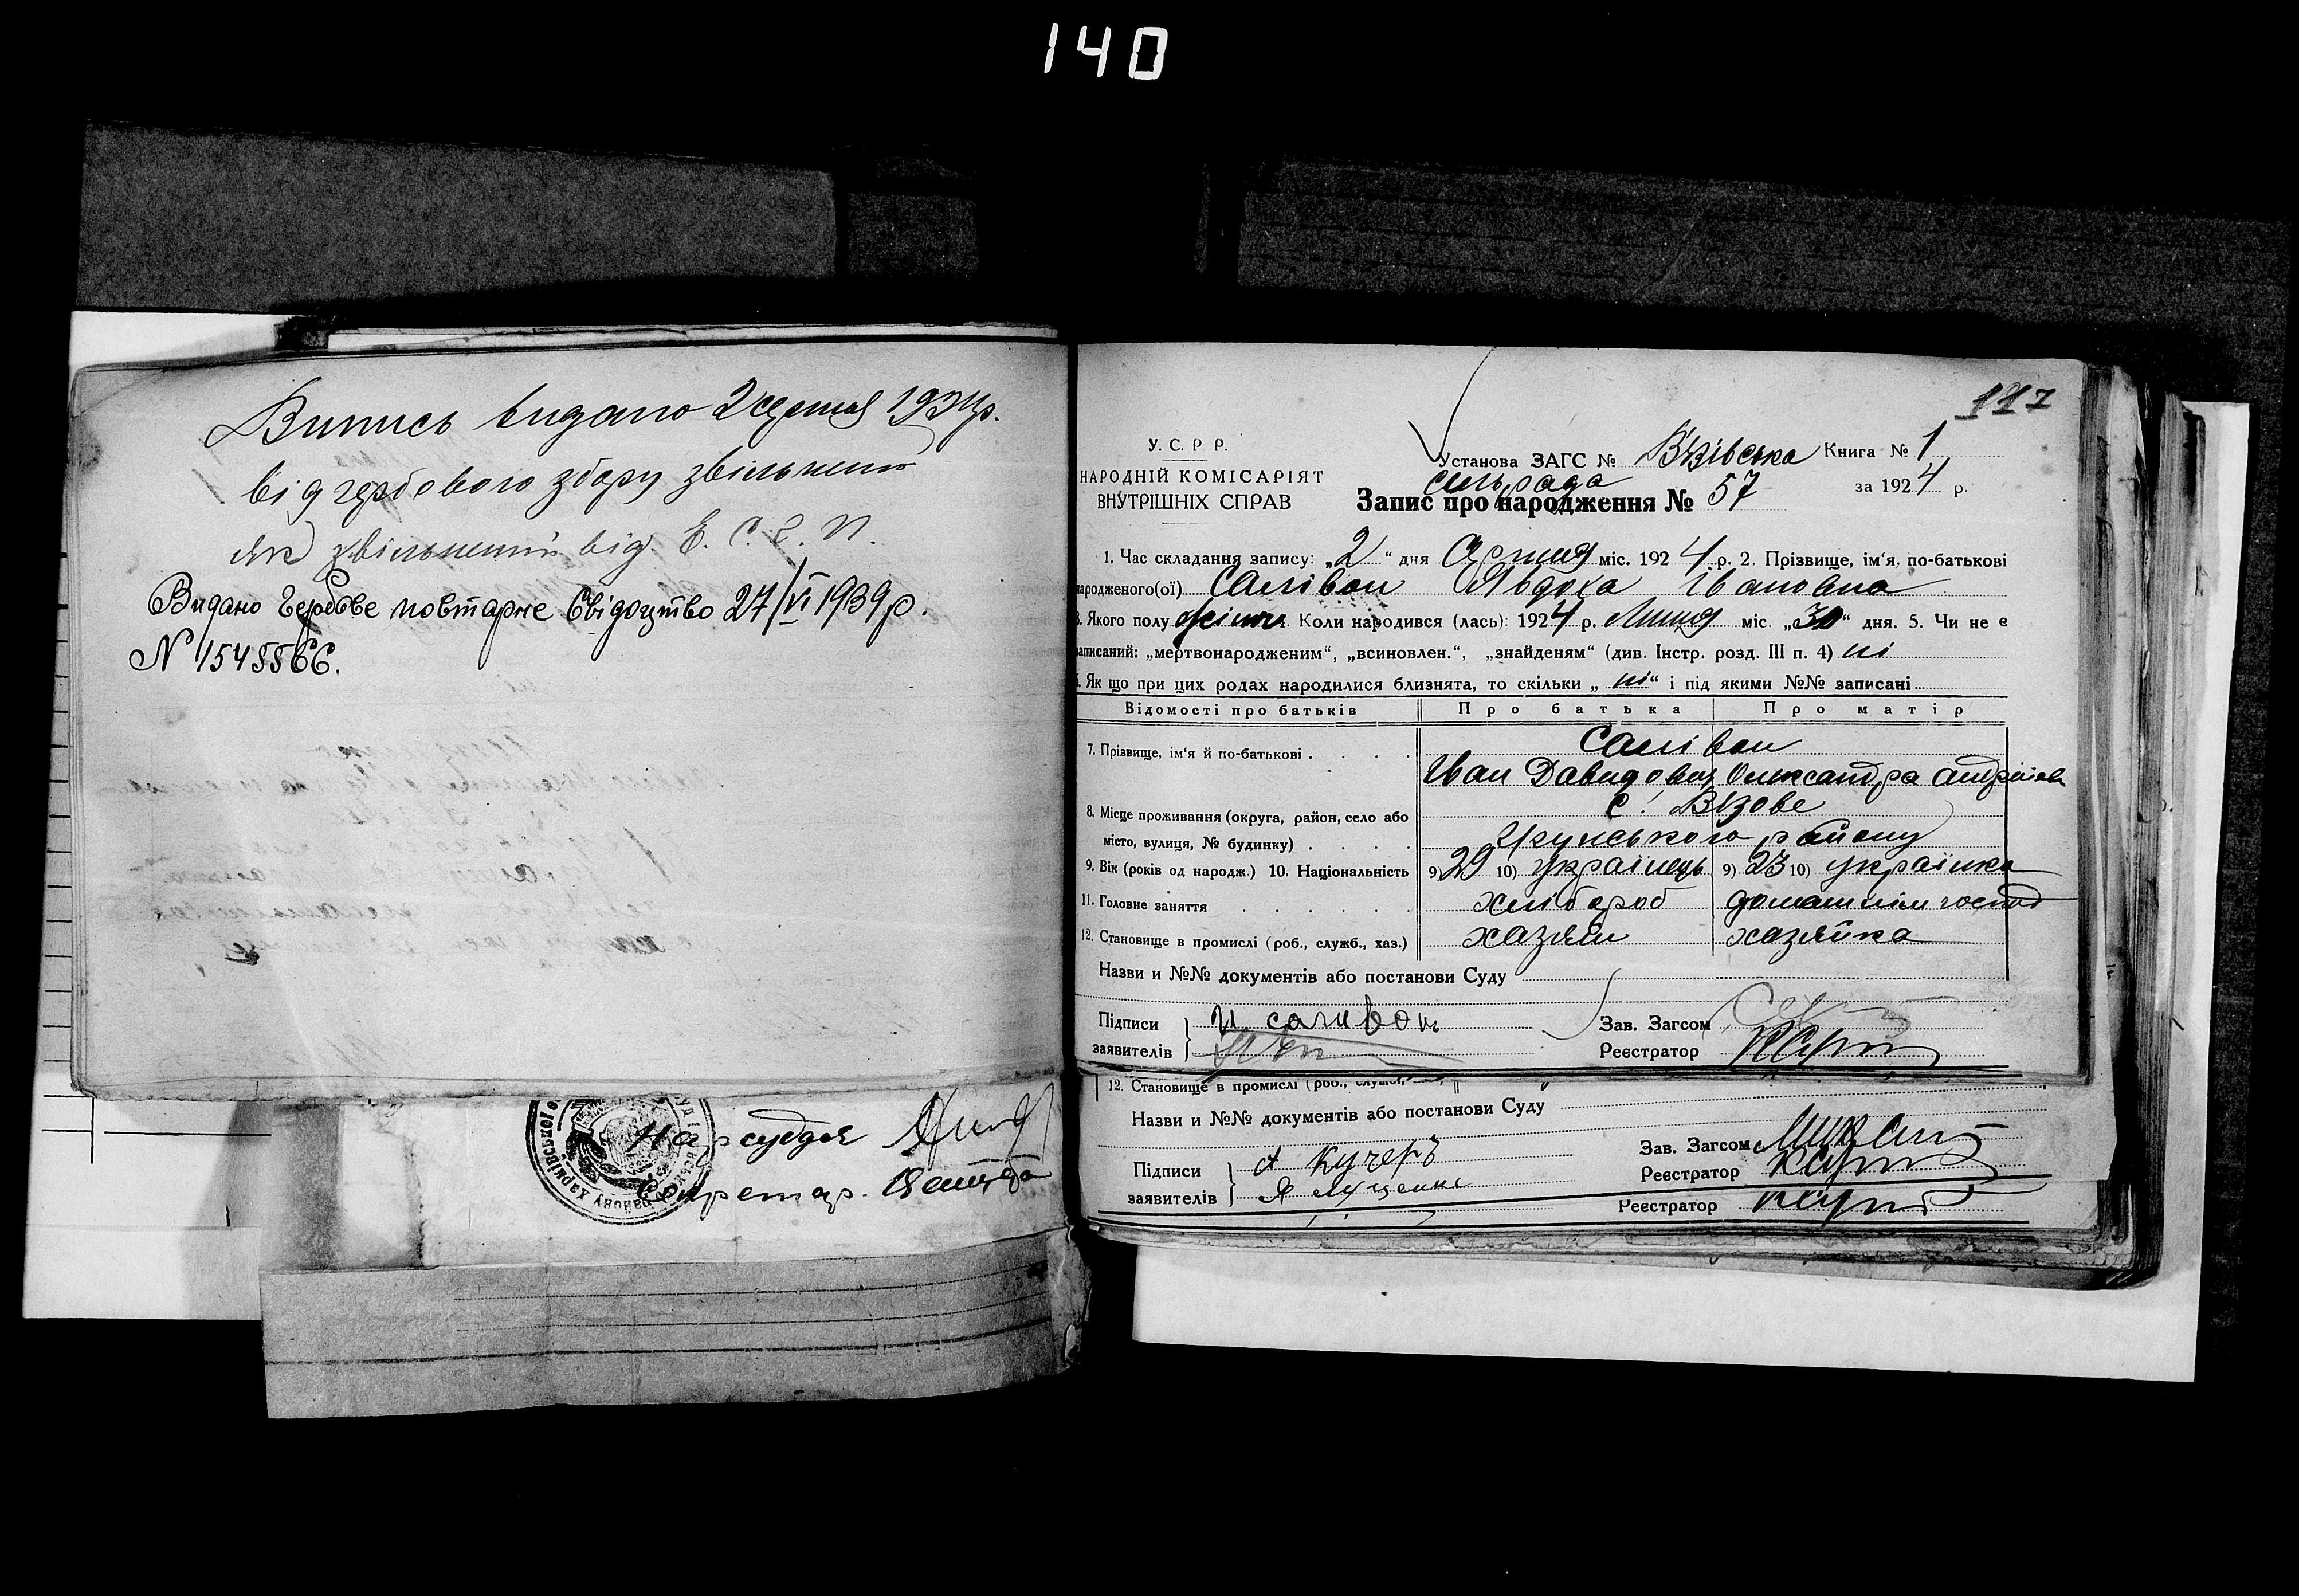 140
Випись видано 2 серпня 1924р.
від гербового збору звільнений
як звільнений від Е. С. С. П.
Видано Гербове повтарне Свідоцтво 27/VI 1939 р.
N 1545566.
Нарсуддя
Секретар.
117
У. С. Р Р.
НАРОДНІЙ КОМІСАРІЯТ
ВНУТРІШНІХ СПРАВ
Установа ЗАГС № В'язівська Книга № 1
сільрада
Запис про народження № 57 за 1924 р.
1. Час складання запису: „2“ дня Серпня міс. 1924 р. 2. Прізвище, ім‘я, по-батькові
народженого(ої) Салівон Явдоха Івановна
3. Якого полу жіноч. Коли народився (лась): 1924 р. Липня міс. „30“ дня. 5. Чи не є
записаний: „мертвонародженим“, „всиновлен.“, „знайденям“ (див. Інстр. розд. III п. 4) ні
6. Як що при цих родах народилися близнята, то скільки „ні“ і під якими №№ записані
Відомості про батьків Про батька Про матір
7. Прізвище, ім‘я й по-батькові Салівон
Іван Давидович Олександра Андріівн
8. Місце проживання (округа, район, село або с. В'язове
місто, вулиця, № будинку) району
9. Вік (років од народж.) 10. Національність 9) 29 10) українець 9) 23 10) українка
11. Головне заняття хлібороб домашнім господ
12. Становище в промислі (роб., служб., хаз.) хазяїн хазяйка
Назви и №№ документів або постанови Суду
Підписи И саливон Зав. Загсом
заявителів Реєстратор
12. Становище в промислі (роб., служб.,
Назви и №№ документів або постанови Суду
Підписи А Кучеръ Зав. Загсом
заявителів Я Луценко Реєстратор
Реєстратор